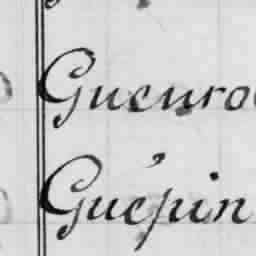 Guenro
Guépin